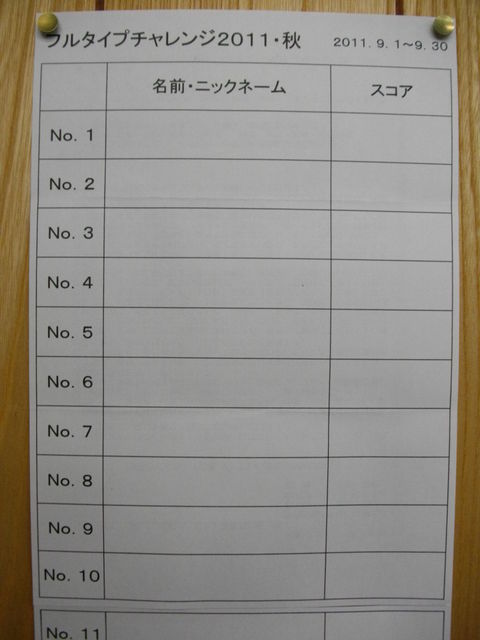 フルタイプチャレンジ2011・秋 2011.9.1～9.30
名前・ニックネーム スコア
No. 1
No. 2
No. 3
No. 4
No. 5
No. 6
No. 7
No. 8
No. 9
No. 10
No. 11